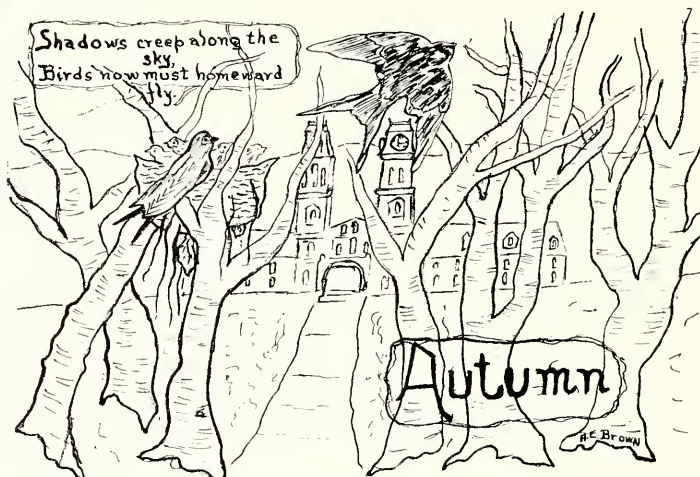 Shadows creep along the
sky,
Birds now must homeward
fly.
Autumn
A.E BROWN